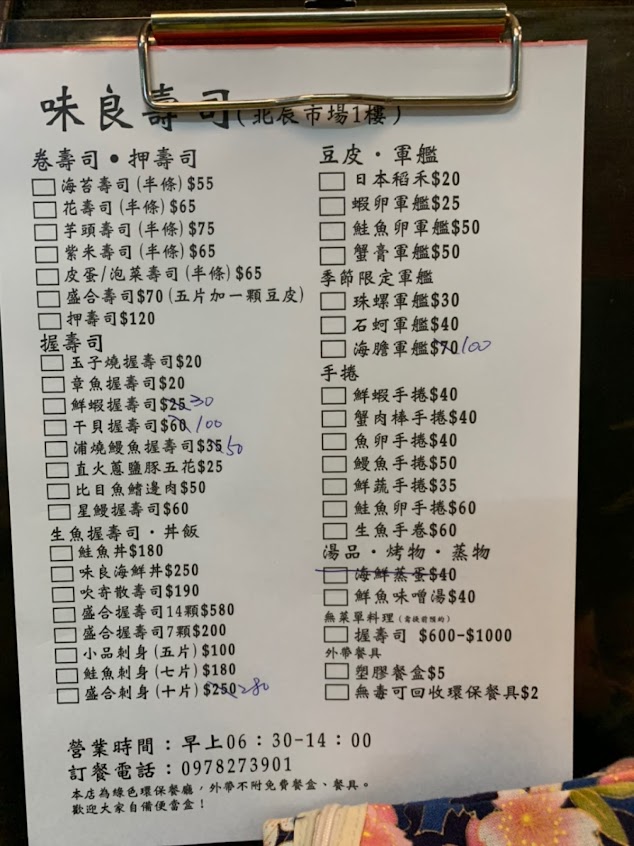 味良壽司(北辰市場1樓)
卷壽司•押壽司
海苔壽司(半條)$55
花壽司(半條)$65
芋頭壽司(半條)$75
紫米壽司(半條)$65
皮蛋/泡菜壽司(半條)$65
盛合壽司$70(五片加一顆豆皮)
押壽司$120
握壽司
玉子燒握壽司$20
章魚握壽司$20
鮮蝦握壽司$25 30
干貝握壽司$60 100
浦燒鰻魚握壽司$35 50
直火蔥鹽豚五花$25
比目魚鰭邊肉$50
星鰻握壽司$60
生魚握壽司·丼飯
鮭魚丼$180
味良海鮮丼$250
吹寄散壽司$190
盛合握壽司14顆$580
盛合握壽司7顆$200
小品刺身(五片)$100
鮭魚刺身(七片)$180
盛合刺身(十片)$250 280
豆皮·軍艦
日本稻禾$20
蝦卵軍艦$25
鮭魚卵軍艦$50
蟹膏軍艦$50
季節限定軍艦
珠螺軍艦$30
石蚵軍艦$40
海膽軍艦$70 100
手捲
鮮蝦手捲$40
蟹肉棒手捲$40
魚卵手捲$40
鰻魚手捲$50
鮮蔬手捲$35
鮭魚卵手捲$60
生魚手卷$60
湯品·烤物·蒸物
海鮮蒸蛋$40
鮮魚味噌湯$40
無菜單料理(需提前預約)
握壽司 $600-$1000
外帶餐具
塑膠餐盒$5
無毒可回收環保餐具$2
營業時間：早上06：30-14：00
訂餐電話：0978273901
本店為綠色環保餐廳，外帶不附免費餐盒、餐具。
歡迎大家自備便當盒！